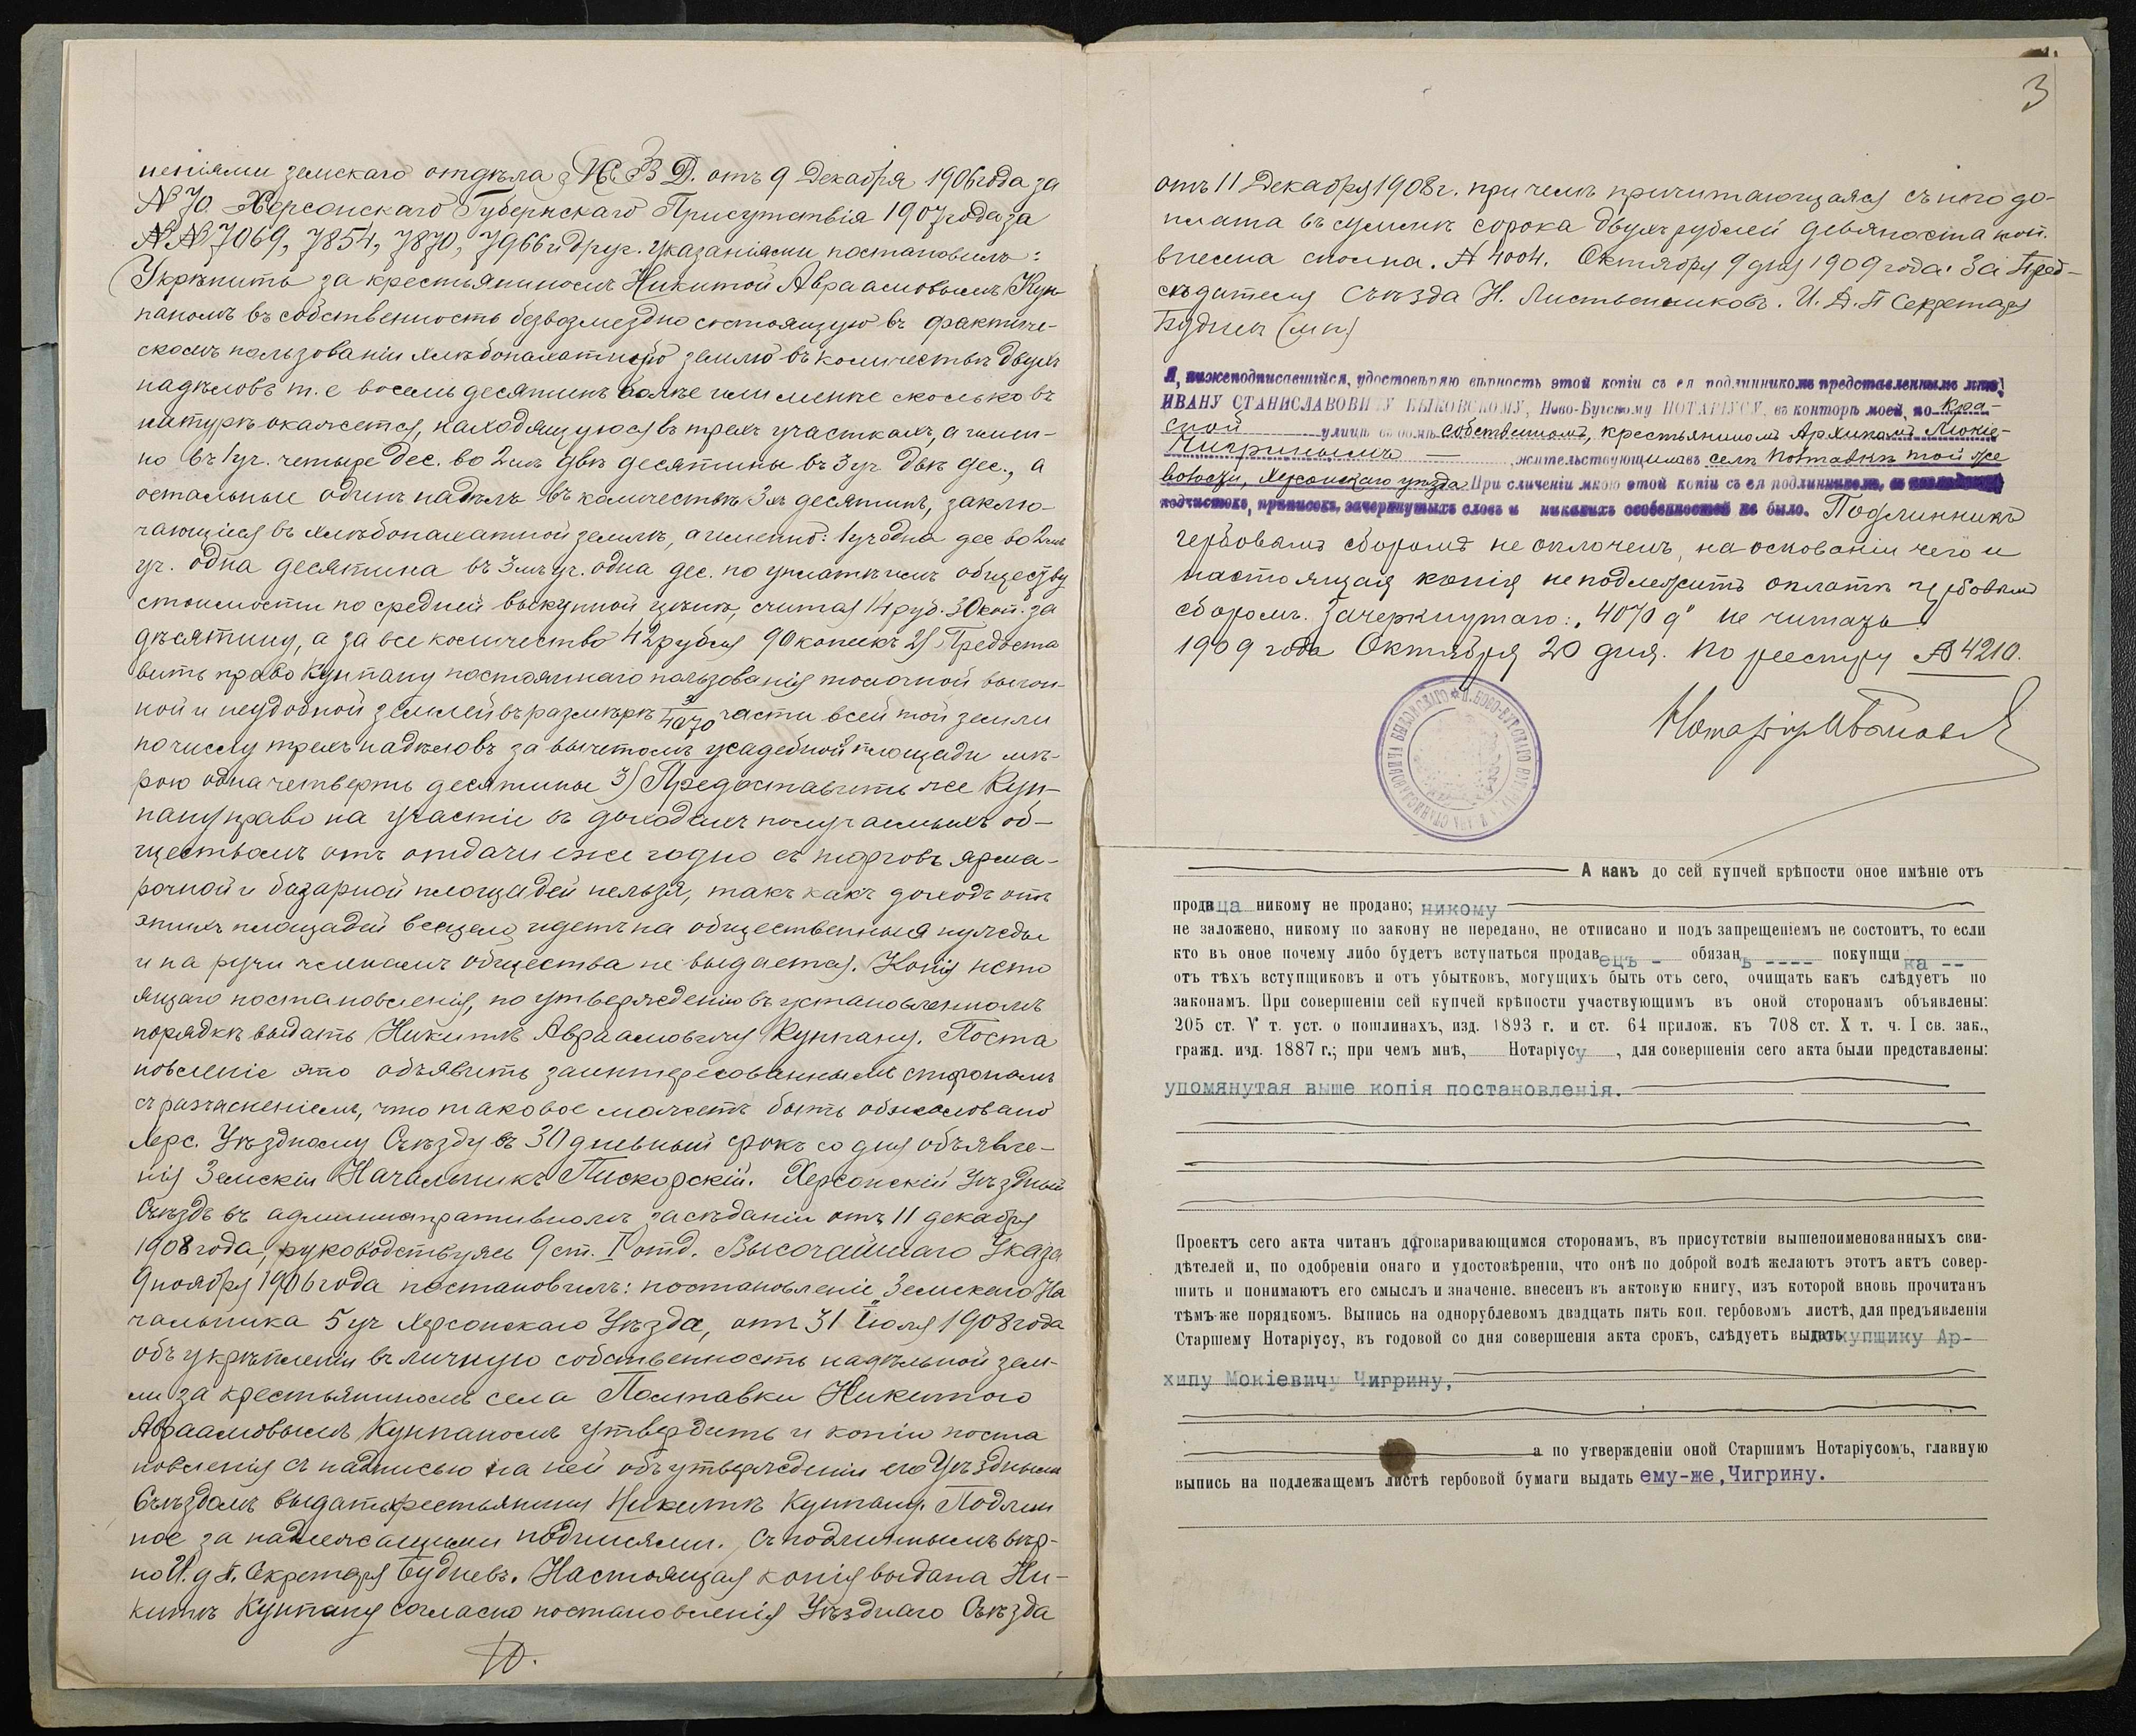 неніями земскаго отдѣла М. В. Д. отъ 9 Декабря 1906 года за
№ 70 Херсонскаго Губернскаго Присутствія 1907 года за
№№ 7069, 7854, 7870, 7966 и друг. указаніями, постановилъ:
Укрѣпить за крестьяниномъ Никитой Авраамовымъ Куп-
паномъ въ собственность безвозмездно состоящую въ фактиче-
скомъ пользованіи хлѣбопахатную землю въ количествѣ двухъ
надѣловъ т. е восемь десятинъ болѣе или менѣе сколько въ
натурѣ окажется, находящуюся въ трехъ участкахъ, а имен-
но въ 1 уч. четыре дес. во 2мъ двѣ десятины въ 3 уч двѣ дес., а
остальные одинъ надѣлъ въ количествѣ 3хъ десятинъ, заклю-
чающійся въ хлѣбопахатной землѣ, а именно: 1 уч одна дес во 2мъ
уч. одна десятина въ 3мъ уч. одна дес. по уплатѣ имъ обществу
стоимости по средней выкупной цѣнѣ, считая 14 руб. 30 коп. за
десятину, а за все количество 42 рубля 90 копѣекъ 2) Предоста
вить право Куппану постояннаго пользованія толочной выгон-
ной и неудобной землей въ размѣрѣ 3/4070 части всей той земли
по числу трехъ надѣловъ за вычетомъ усадебной площади мѣ-
рою одна четверть десятины 3) Предоставить же Куп-
пану право на участіе въ доходахъ получаемыхъ об-
ществомъ отъ отдачи ежегодно съ торговъ ярма-
рочной и базарной площадей нельзя, такъ какъ доходъ отъ
этихъ площадей всецело идетъ на общественныя нужды
и на руки членамъ общества не выдается. Копія насто
ящаго постановленія, по утвержденію въ установленномъ
порядкѣ выдать Никитѣ Авраамовичу Куппану. Поста
новленіе это объявить заинтересованнымъ сторонамъ
съ разъясненіемъ, что таковое можетъ быть обжаловано
Херс. Уѣздному Съѣзду въ 30 дневный срокъ со дня объявле-
нія Земскій Начальникъ Пискорскій. Херсонскій Уѣздный
Съѣздъ въ административномъ засѣданіи отъ 11 декабря
1908 года, руководствуясь 9 ст. I отд. Высочайшаго Указа
9 ноября 1906 года постановилъ: постановленіе Земскаго На
чальника 5 уч Херсонскаго Уѣзда, отъ 31 Іюля 1908 года
объ укрѣпленіи въ личную собственность надѣльной зем-
ли за крестьяниномъ села Полтавки Никитою
Авраамовымъ Куппаномъ утвердить и копію поста
новленія съ надписью на ней объ утвержденіи его Уѣзднымъ
Съѣздомъ выдать крестьянину Никитѣ Куппану. Подлин
ное за надлежащими подписями. Съ подлиннымъ вѣр-
но И. д П. Секретаря Будневъ. Настоящая копія выдана Ни-
китѣ Куппану согласно постановленія Уѣзднаго Съѣзда
3
отъ 11 Декабря 1908 г. при чемъ причитающаяся съ него до-
плата въ суммѣ сорока двухъ рублей девяноста коп.
внесена сполна. № 4004. Октября 9 дня 1909 года. За Пред-
сѣдателя Съѣзда Н. Листвениковъ. И. Д. П Секретаря
Будневъ (мп.)
Я, нижеподписавшійся, удостовѣряю вѣрность этой копіи съ ея подлинникомъ представленнымъ мнѣ,
ИВАНУ СТАНИСЛАВОВИЧУ БЫКОВСКОМУ, Ново-Бугскому НОТАРІУСУ, въ конторѣ моей, по Кра-
сной улицѣ въ домѣ собственномъ, крестьяниномъ Архипомъ Мокіе-
Чигринымъ — жительствующимъ въ селѣ Полтавкѣ той же
волости, Херсонскаго уѣзда. При сличеніи мною этой копіи съ ея подлинникомъ, въ
подчистокъ, приписокъ, зачеркнутыхъ словъ и никакихъ особенностей не было. Подлинникъ
гербовымъ сборомъ не оплоченъ, на основаніи чего и
настоящая копія не подлежитъ оплатѣ гербовымъ
сборомъ. Зачеркнутаго: „4070 д" не читать
1909 года Октября 20 дня. По реестру № 4210.
А какъ до сей купчей крѣпости оное имѣніе отъ
продвца никому не продано; никому
не заложено, никому по закону не передано, не отписано и подъ запрещеніемъ не состоитъ, то если
кто въ оное почему либо будетъ вступаться продавецъ - обязанъ ---- покупщика --
отъ тѣхъ вступщиковъ и отъ убытковъ, могущихъ быть отъ сего, очищать какъ слѣдуетъ по
законамъ. При совершеніи сей купчей крѣпости участвующимъ въ оной сторонамъ объявлены:
205 ст. V т. уст. о пошлинахъ, изд. 1893 г. и ст. 64 прилож. къ 708 ст. X т. ч. I св. зак.,
гражд. изд. 1887 г.; при чемъ мнѣ, Нотаріусу, для совершенія сего акта были представлены:
упомянутая выше копія постановленія.
Проектъ сего акта читанъ договаривающимся сторонамъ, въ присутствіи вышепоименованныхъ сви-
дѣтелей и, по одобреніи онаго и удостовѣреніи, что онѣ по доброй волѣ желаютъ этотъ актъ совер-
шить и понимаютъ его смыслъ и значеніе. внесенъ въ актовую книгу, изъ которой вновь прочитанъ
тѣмъ-же порядкомъ. Выпись на однорублевомъ двадцать пять коп. гербовомъ листѣ, для предъявленія
Старшему Нотаріусу, въ годовой со дня совершенія акта срокъ, слѣдуетъ выдать покупщику Ар-
хипу Мокіевичу Чигрину,
а по утвержденіи оной Старшимъ Нотаріусомъ, главную
выпись на подлежащемъ листѣ гербовой бумаги выдать ему-же, Чигрину.